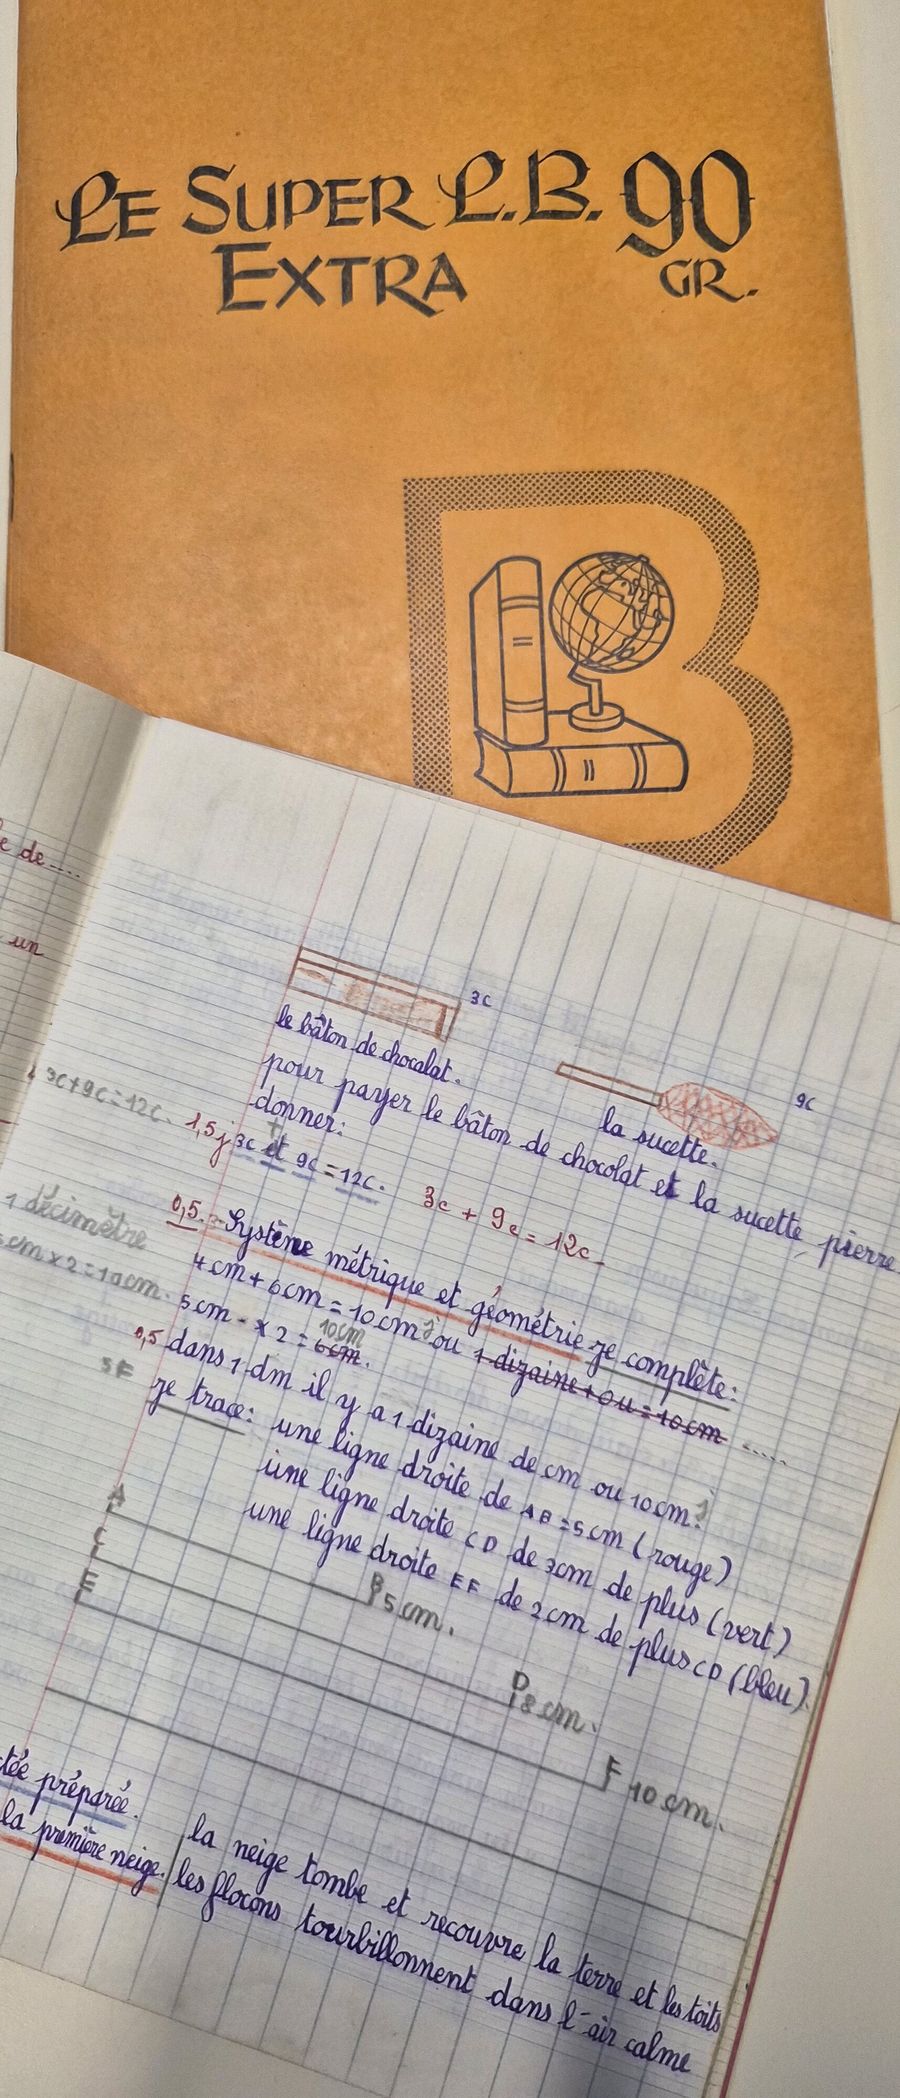 Le Super L.B. 90
Extra GR.
de ....
un
3c
le bâton de chocalat.
9c
la sucette.
pour payer le bâton de chocolat et la sucette, pierre
donner:
3c+9c=12c.
1,5 j 3c et 9c = 12c.
3c + 9c = 12c.
0,5. Système métrique et géométrie je complète:
1 décimètre
4cm + 6cm = 10cm ou 1 dizaine + 0u = 10cm ....
5cm x 2 = 10cm.
5cm - x 2 = 6cm. 10cm
0,5 dans 1 dm il y a 1 dizaine de cm ou 10cm.
je trace: une ligne droite de AB = 5cm (rouge)
une ligne droite CD de 3cm de plus (vert)
une ligne droite EF de 2cm de plus CD (bleu).
A
B 5cm.
C
D 8cm.
E
F 10cm.
tée préparée.
la première neige. la neige tombe et recouvre la terre et les toits
les flocons tourbillonnent dans l'air calme